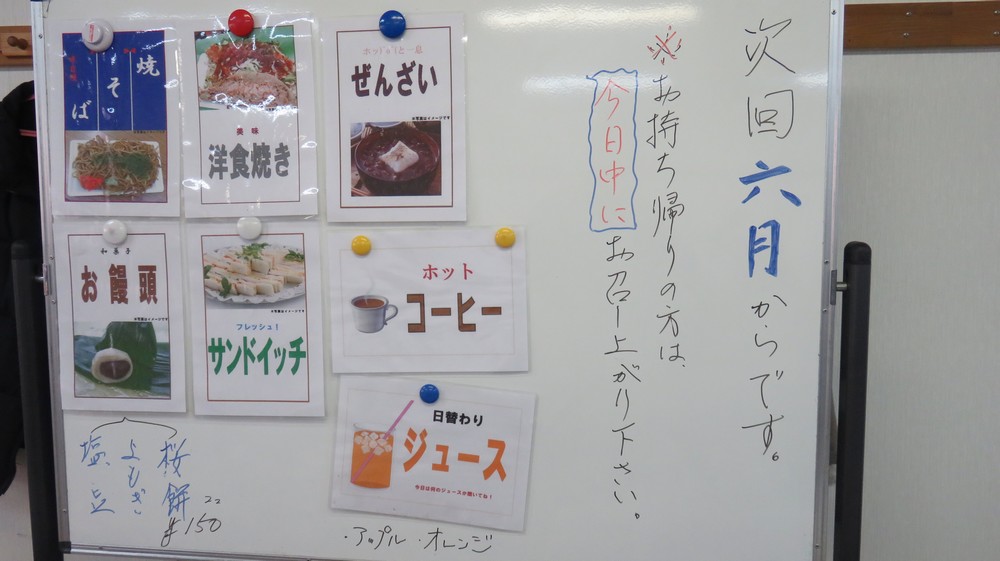 次回六月からです。
※お持ち帰りの方は、
今日中にお召し上がり下さい。
焼そば
美味
洋食焼き
ぜんざい
※写真はイメージです
和菓子
お饅頭
フレッシュ!
サンドイッチ
ホット
コーヒー
日替わり
ジュース
今日は何のジュースか聞いてね!
桜餅
よもぎ
塩豆
2コ
¥150
・アップル ・オレンジ